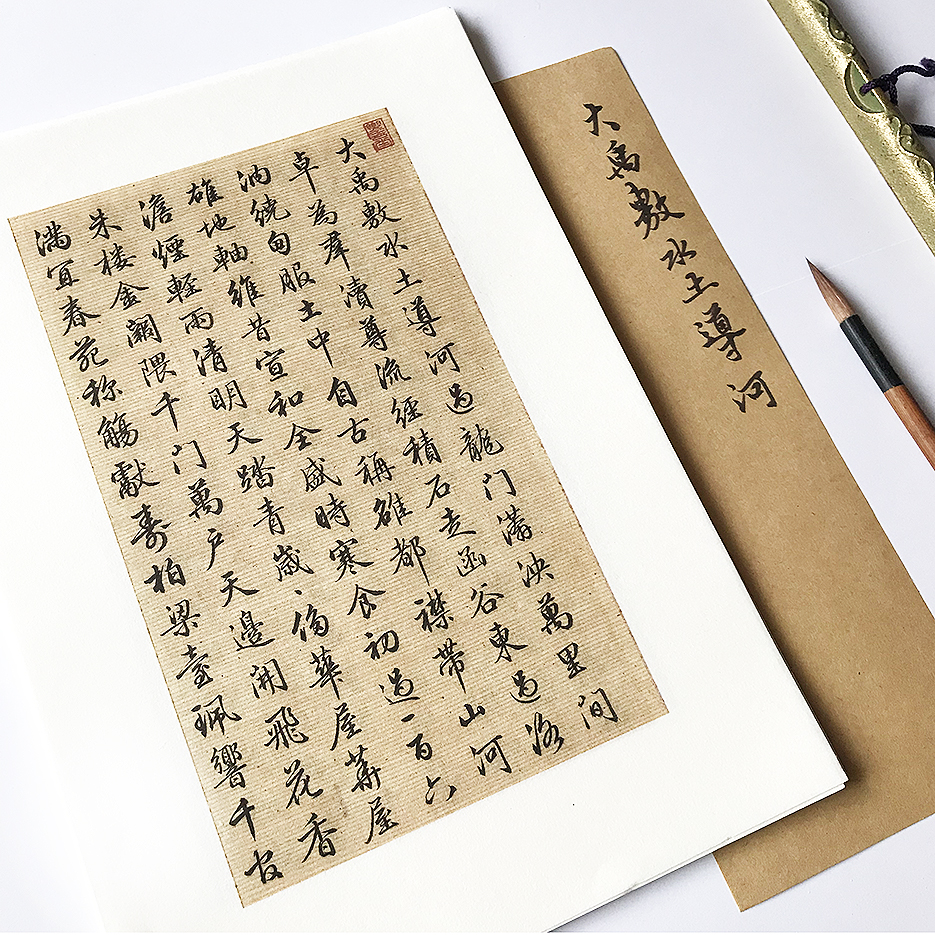 大禹敷水土導河過龍门满泱萬里间
卓為羣瀆尊流經積石走函谷東過洛
汭繞甸服土中自古稱雄都襟带山河
雄地軸維昔宣和全盛時寒食初過一百六
澹煙輕雨清明天踏青歲、偏華屋華屋
朱楼金闕隈千门萬户天邊開飛花香
满宜春苑称觴獻壽柏梁臺珮響千官
大禹敷水土導河